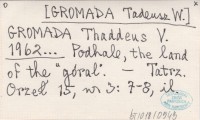 [GROMADA Tadeusz W.]
GROMADA Thaddeus V.
1962... Podhale, the land
of the "góral". – Tatrz.
Orzeł 15, nr 3: 7-8, il.